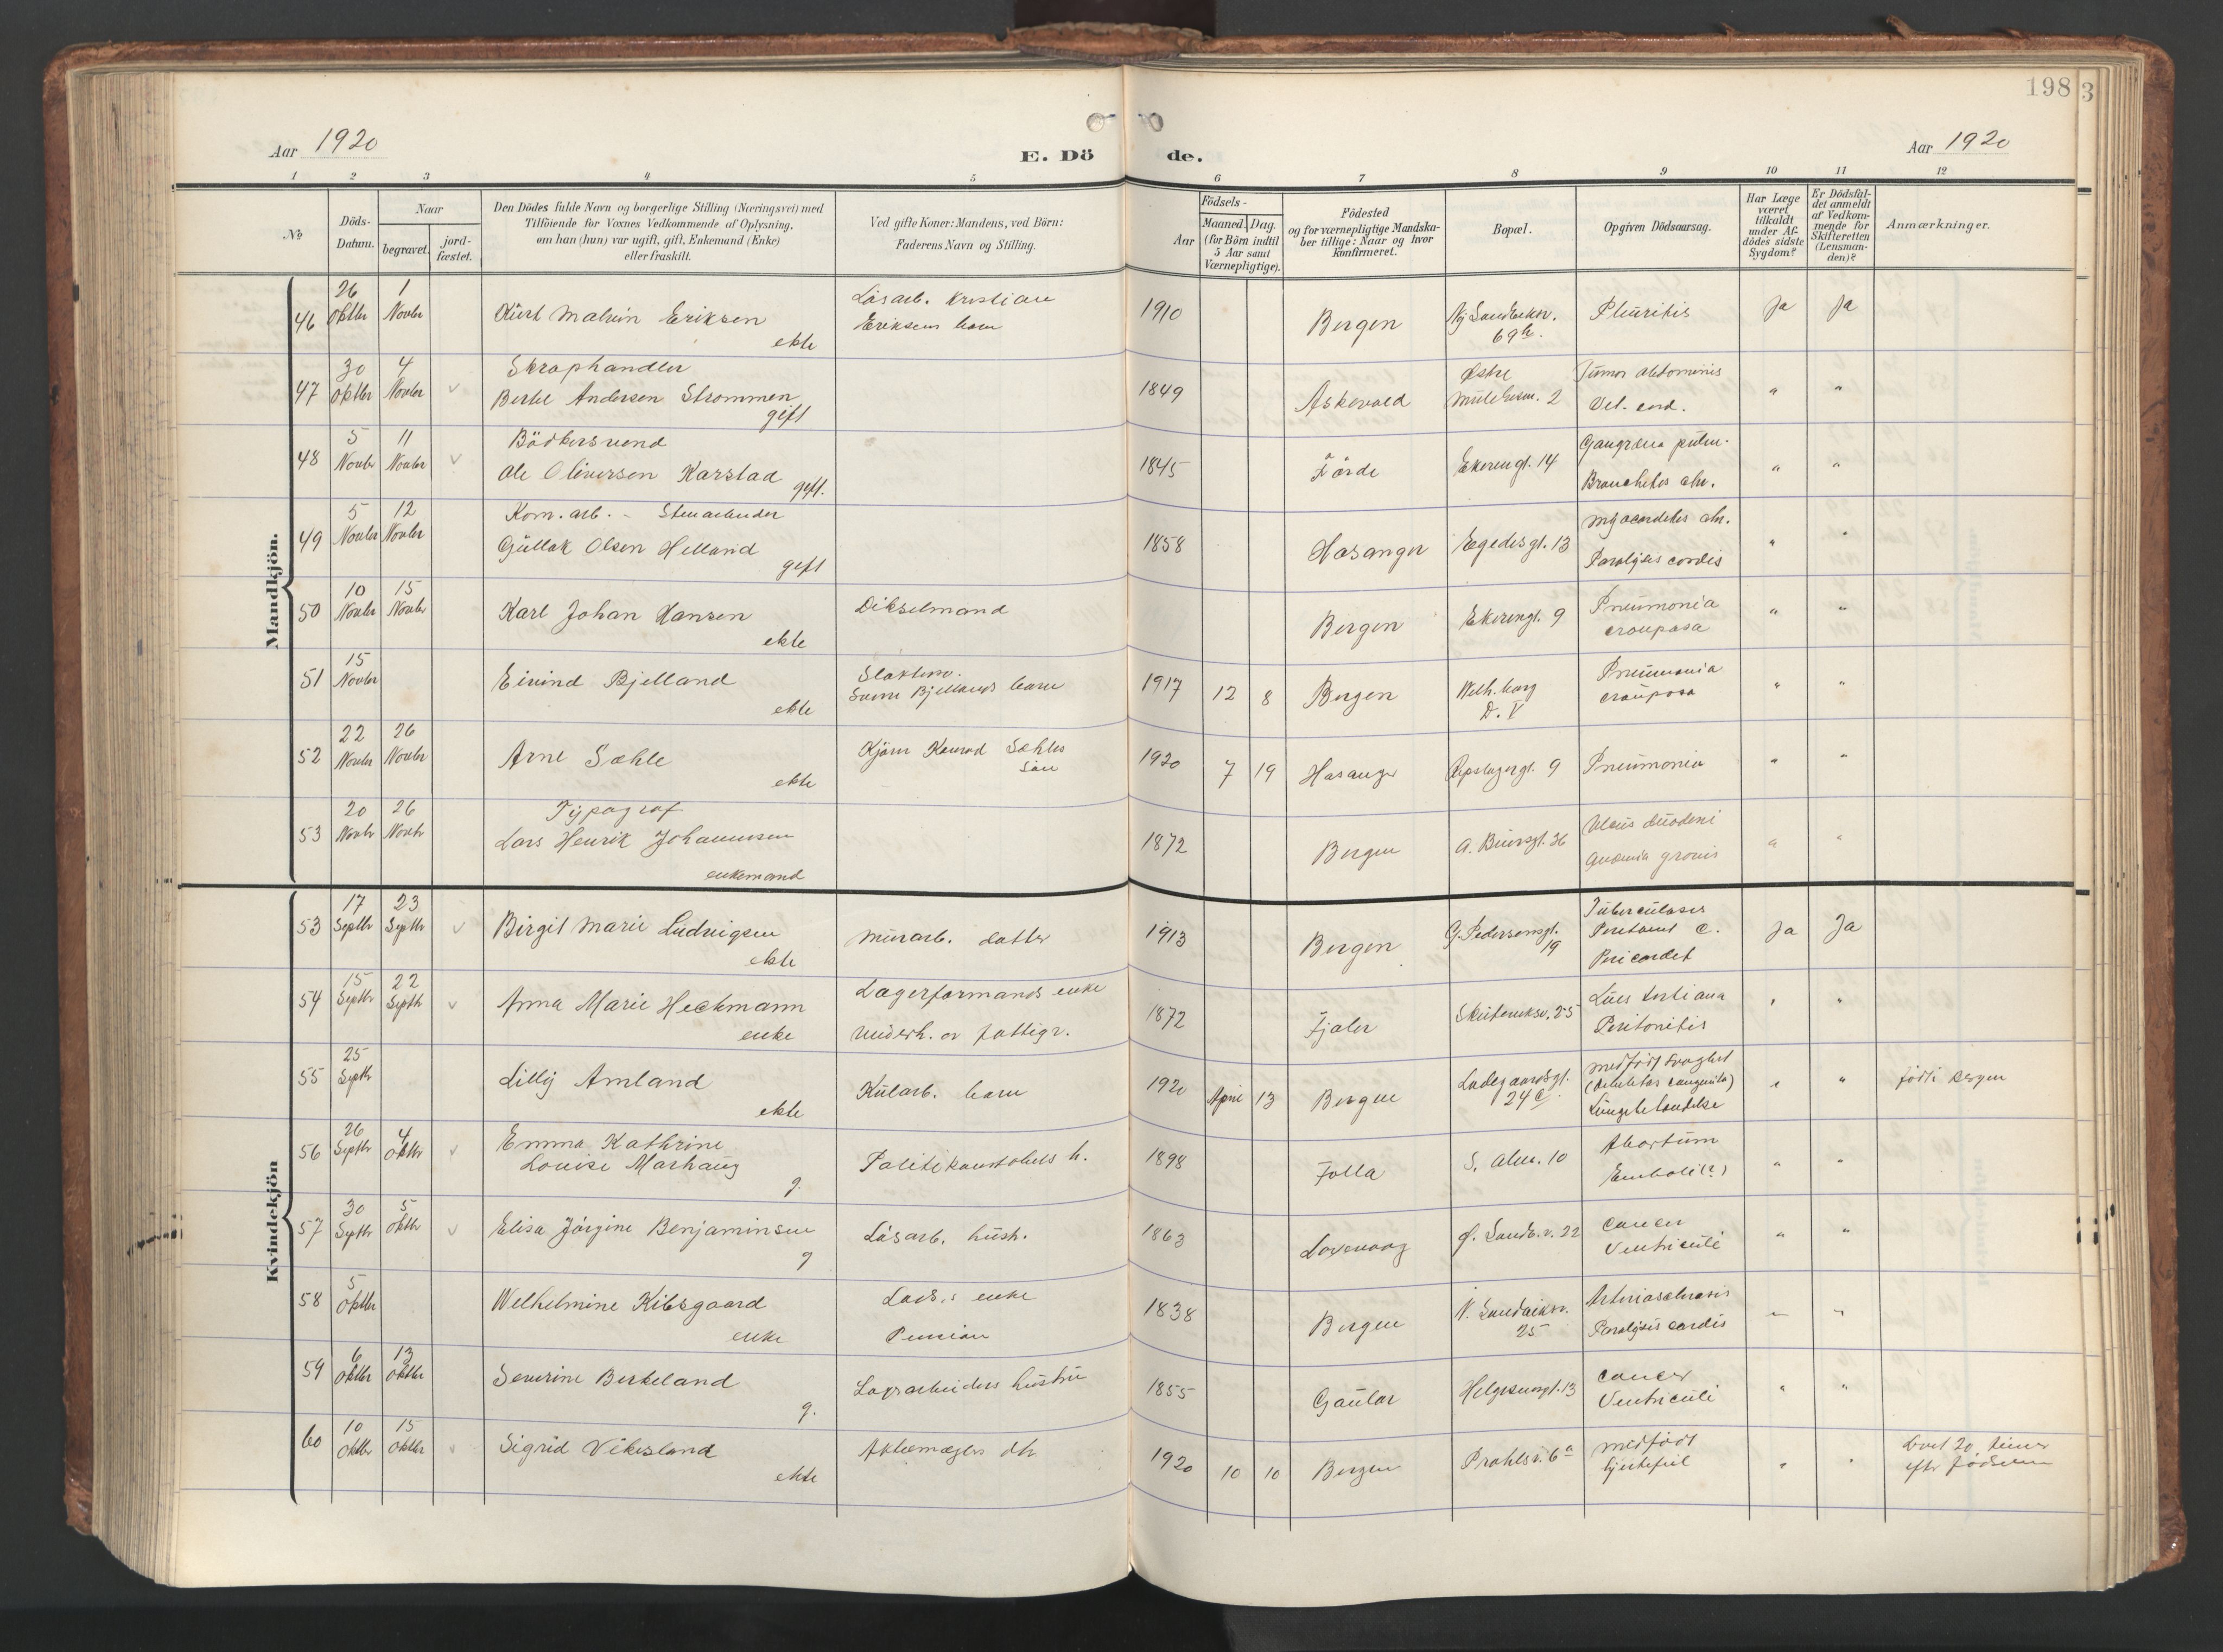 198
3
Aar 1920
E. Dö
de.
Aar 1920
1 2 3 4 5 6 7 8 9 10 11 12
No
Döds-
Datum.
Naar
begravet.
jord-
fæstet.
Den Dödes fulde Navn og borgerlige Stilling (Næringsvei) med
Tilföiende for Voxnes Vedkommende af Oplysning,
om han (hun) var ugift, gift, Enkemand (Enke)
eller fraskilt.
Ved gifte Koner: Mandens, ved Börn:
Faderens Navn og Stilling.
Födsels-
Aar
Maaned. Dag.
(for Börn indtil
5 Aar samt
Værnepligtige).
Födested
og for værnepligtige Mandska-
ber tillige: Naar og hvor
konfirmeret.
Bopæl.
Opgiven Dödsaarsag.
Har Læge
været
tilkaldt
under Af-
dödes sidste
Sygdom?
Er Dödsfal-
det anmeldt
af Vedkom-
mende for
Skifteretten
(Lensman-
den)?
Anmærkninger.
Mandkjön.
46
26
Oktbr
1
Novbr
Kurt Malvin Eriksen
ekte
Lösarb. Kristian
Eriksens barn
1910
Bergen
Ny Sandviksv.
69 b.
Pleuritis
Ja
Ja
47
30
Oktbr
4
Novbr
Skraphandler
Bertel Andersen Strømmen
gift
1849
Askevold
Østre
Mulelvsm. 2
Tumor abdominis
Vit. cord.
"
"
48
5
Novbr
11
Novbr
Bödkersvend
Ole Oliversen Karstad
gift.
1845
Förde
Ekerengt. 14
Gangræna pulm.
Bronchitis chr.
"
"
49
5
Novbr
12
Novbr
Kom. arb. - Stenarbeider
Gullak Olsen Helland
gift
1858
Hosanger
Egedesgt. 13
Myocarditis chr.
Paralysis cordis
"
"
50
10
Novbr
15
Novbr
Karl Johan Hansen
ekte
Dikselmand
Bergen
Ekerengt. 9
Pneumonia
crouposa
"
"
51
15
Novbr
Eivind Bjelland
ekte
Bjellands barn
1917
12
8
Bergen
Welh. borg
D. V
Pneumonia
crouposa
"
"
52
22
Novbr
26
Novbr
Arne Sæhle
ekte
Kjörer Konrad Sæhles
sön
1920
7
19
Hosanger
Repslagergt. 9
Pneumonia
"
"
53
20
Novbr
26
Novbr
Typograf
Lars Henrik Johannesen
enkemand
1872
Bergen
A. Buursgt. 36
Ulcus duodeni
Anæmia gravis
"
"
Kvindekjön
53
17
Septbr
23
Septbr
Birgit Marie Ludvigsen
ekte
Murarb. datter
1913
Bergen
G. Pedersensgt.
19
Tuberculosis
Peritonit c.
Pericardit
Ja
Ja
54
15
Septbr
22
Septbr
Anna Marie Heckmann
enke
Lagerformands enke
underh. av fattigv.
1872
Fjaler
Skuteviksv. 25
Lues tertiana
Peritonitis
"
"
55
25
Septbr
Lilly Amland
ekte
Kularb. barn
1920
April
13
Bergen
Ladegaardsgt.
24 c.
Medfödt svaghet
(debilitas congenita)
Lungebetændelse
"
"
födt i Bergen
56
26
Septbr
4
Oktbr
Emma Kathrine
Louise Marhaug
g.
Politikonstabels h.
1898
Folla
S. Alm. 10
Abortum
Emboli (?)
"
"
57
30
Septbr
5
Oktbr
Elisa Jörgine Benjaminsen
g
Lösarb. hustr.
1863
Ø. Sandv. v. 22
Cancer
Ventriculi
"
"
58
5
Oktbr
Welhelmine Kibsgaard
enke
Lods.s enke
Pension
1838
Bergen
N. Sandviksv.
25
Arteriosclerosis
Paralysis cordis
"
"
59
6
Oktbr
13
Oktbr
Severine Birkeland
g.
Lösarbeiders hustru
1855
Gaular
Helgesensgt. 13
Cancer
Ventriculi
"
"
60
10
Oktbr
15
Oktbr
Sigrid Vikesland
ekte
Aktiemægler dtr
1920
10
10
Bergen
Prahlsv. 6 a
Medfödt
hjertefeil
"
"
Levet 20 timer
eftr födselen